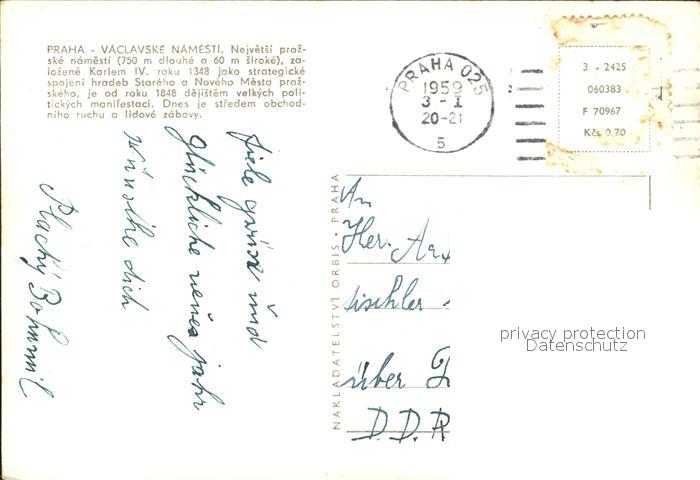 PRAHA - VÁCLAVSKÉ NÁMĚSTÍ. Největší praž-
ské náměstí (750 m dlouhé a 60 m široké), za-
ložené Karlem IV. roku 1348 jako strategické
spojení hradeb Starého a Nového Města praž-
ského, je od roku 1848 dějištěm velkých poli-
tických manifestací. Dnes je středem obchod-
ního ruchu a lidové zábavy.
PRAHA 025
1959
3 - I
20-21
5
3 - 2425
060383
F 70967
Kčs 0,70
Viele grüsse und
glückliche neues jahr
wünsche dich
Plachý Bohumil
NAKLADATELSTVÍ ORBIS · PRAHA
An
Her.
tischler
über
D.D.R
privacy protection
Datenschutz